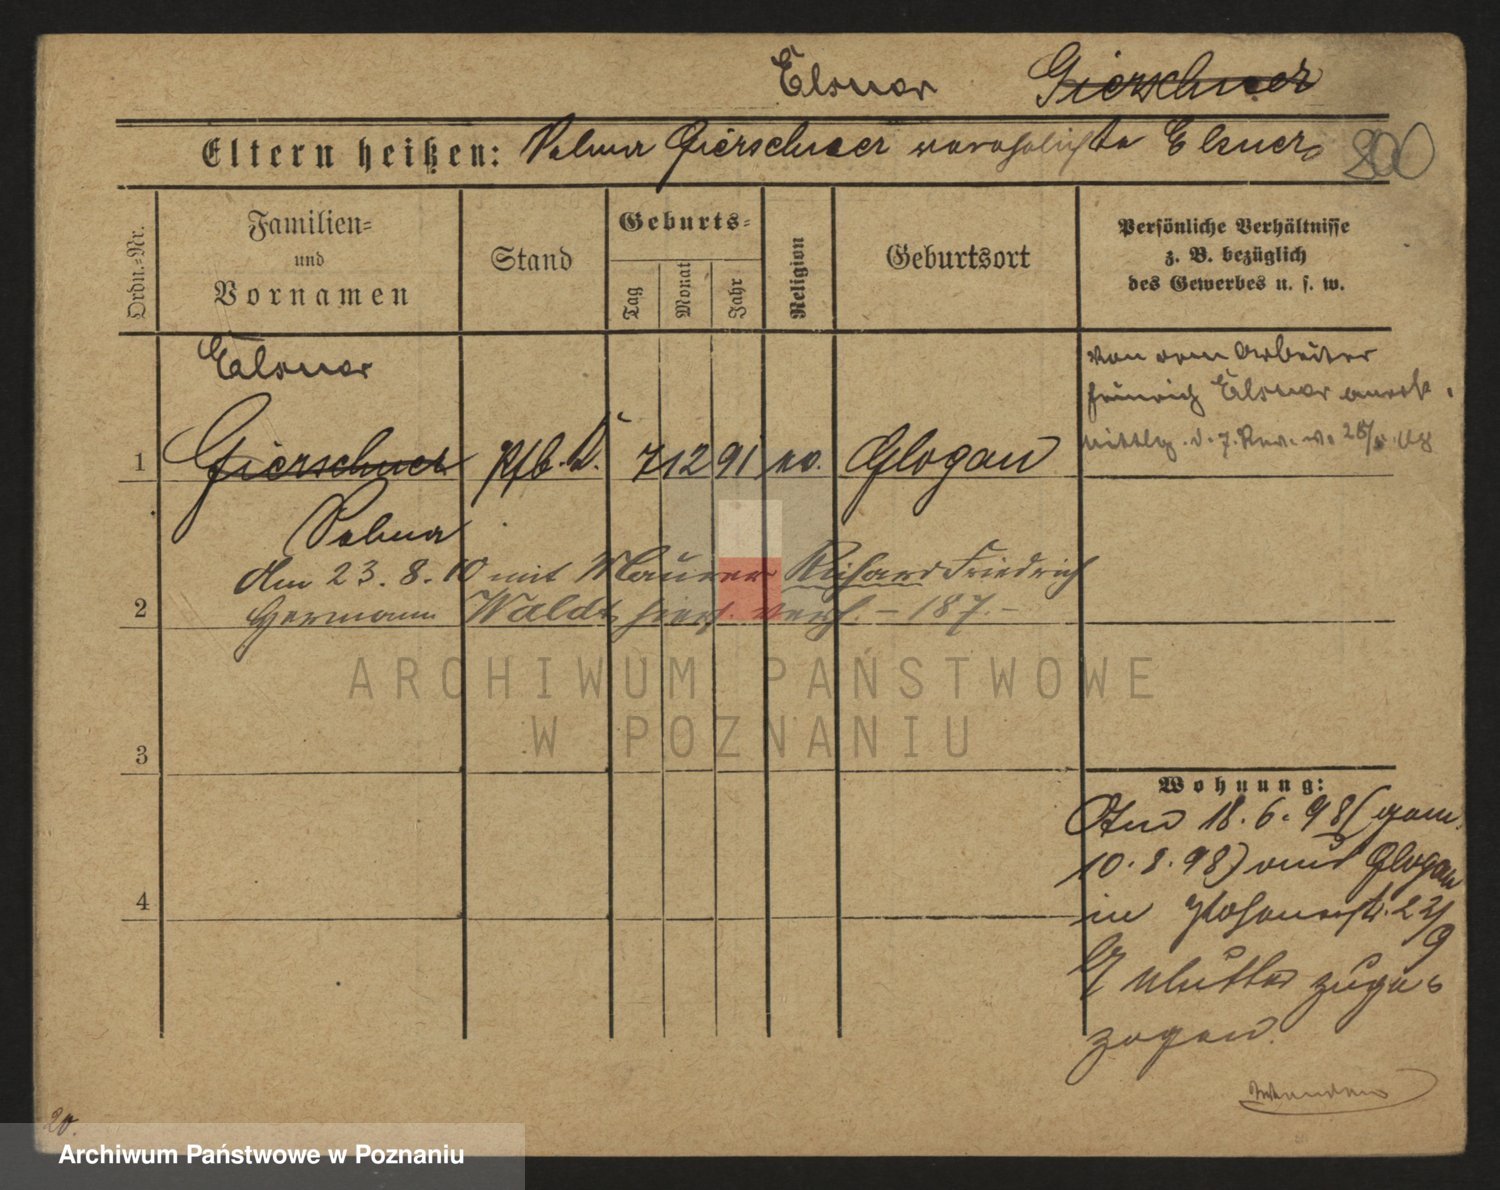 Elsner Gierschner
Eltern heißen: Selma Gierschner verehelichte Elsner 200
Ordn.-Nr.
Familien-
und
Vornamen
Stand
Geburts-
Tag
Monat
Jahr
Religion
Geburtsort
Persönliche Verhältnisse
z. B. bezüglich
des Gewerbes u. s. w.
Elsner
1 Gierschner 7 12 91 ev. Glogau
Selma
von dem Arbeiter
Heinrich Elsner anerk.
Am 23. 8. 10 mit Maurer Richard Friedrich
2 Hermann Waldt hier verh. - 187. -
3
4
Wohnung:
Am 18. 6. 98 (gem.
10. 8. 98) aus Glogau
in Posenerstr. 23/
9
Mutter zuge-
zogen.
20.
ARCHIWUM PAŃSTWOWE
W POZNANIU
Archiwum Państwowe w Poznaniu